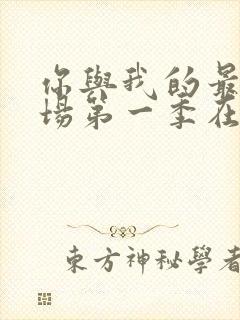 你與我的最
場第一季在
東方神秘學者